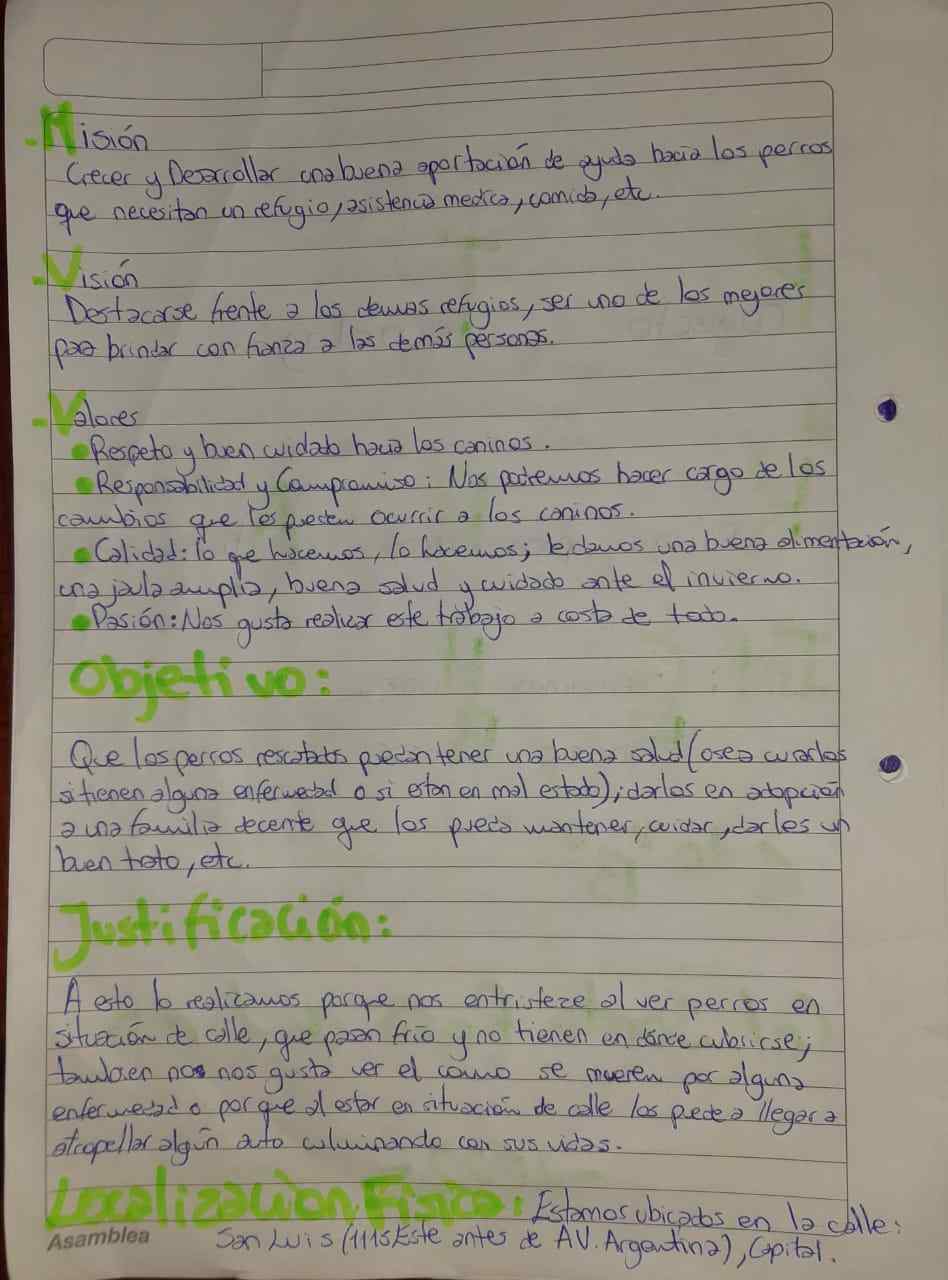 -Misión
Crecer y Desarrollar una buena aportación de ayuda hacia los perros
que necesitan un refugio, asistencia medica, comida, etc.
-Visión
Destacarse frente a los demas refugios, ser uno de los mejores
para brindar confianza a las demás personas.
-Valores
• Respeto y buen cuidado hacia los caninos.
• Responsabilidad y Compromiso: Nos podremos hacer cargo de los
cambios que les pueden ocurrir a los caninos.
• Calidad: lo que hacemos, lo hacemos; le damos una buena alimentación,
una jaula amplia, buena salud y cuidado ante el invierno.
• Pasión: Nos gusta realizar este trabajo a costa de todo.
Objetivo:
Que los perros rescatados puedan tener una buena salud (osea curarlos
si tienen alguna enfermedad o si estan en mal estado); darlos en adopción
a una familia decente que los pueda mantener, cuidar, darles un
buen trato, etc.
Justificación:
A esto lo realizamos porque nos entristeze al ver perros en
situación de calle, que pasan frío y no tienen en dónde cubrirse;
tambien no nos gusta ver el como se mueren por alguna
enfermedad o porque al estar en situación de calle los puede a llegar a
atropellar algún auto culminando con sus vidas.
Localización Física: Estamos ubicados en la calle:
San Luis (1115 Este antes de AV. Argentina), Capital.
Asamblea